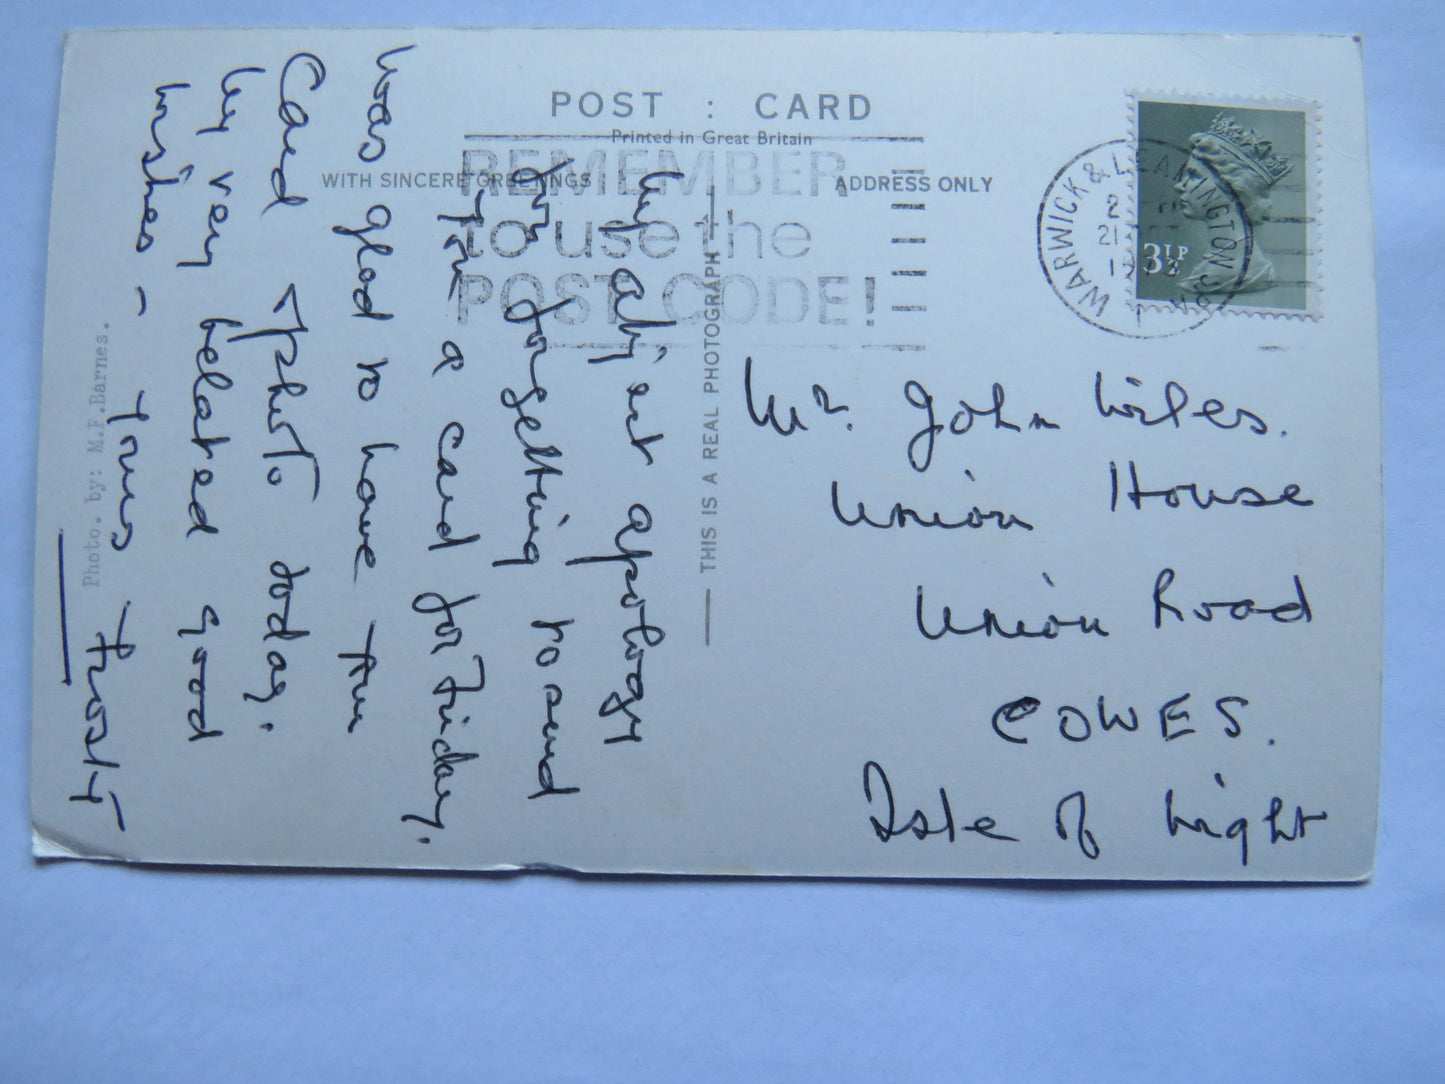 POST : CARD
Printed in Great Britain
WITH SINCERE GREETINGS
ADDRESS ONLY
REMEMBER
to use the
POST CODE!
WARWICK & LEAMINGTON SPA
21
3½P
THIS IS A REAL PHOTOGRAPH
Photo. by: M.F.Barnes.
My abject apology
for forgetting to send
you a card for Friday.
Was glad to have the
Card & photo today.
My very belated good
wishes – Yours Frosty
Mr. John Wiles.
Union House
Union Road
COWES.
Isle of Wight